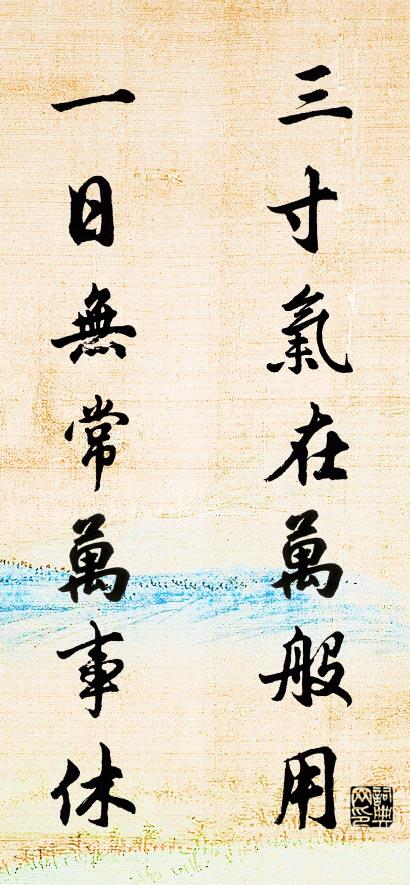 三寸氣在萬般用
一日無常萬事休